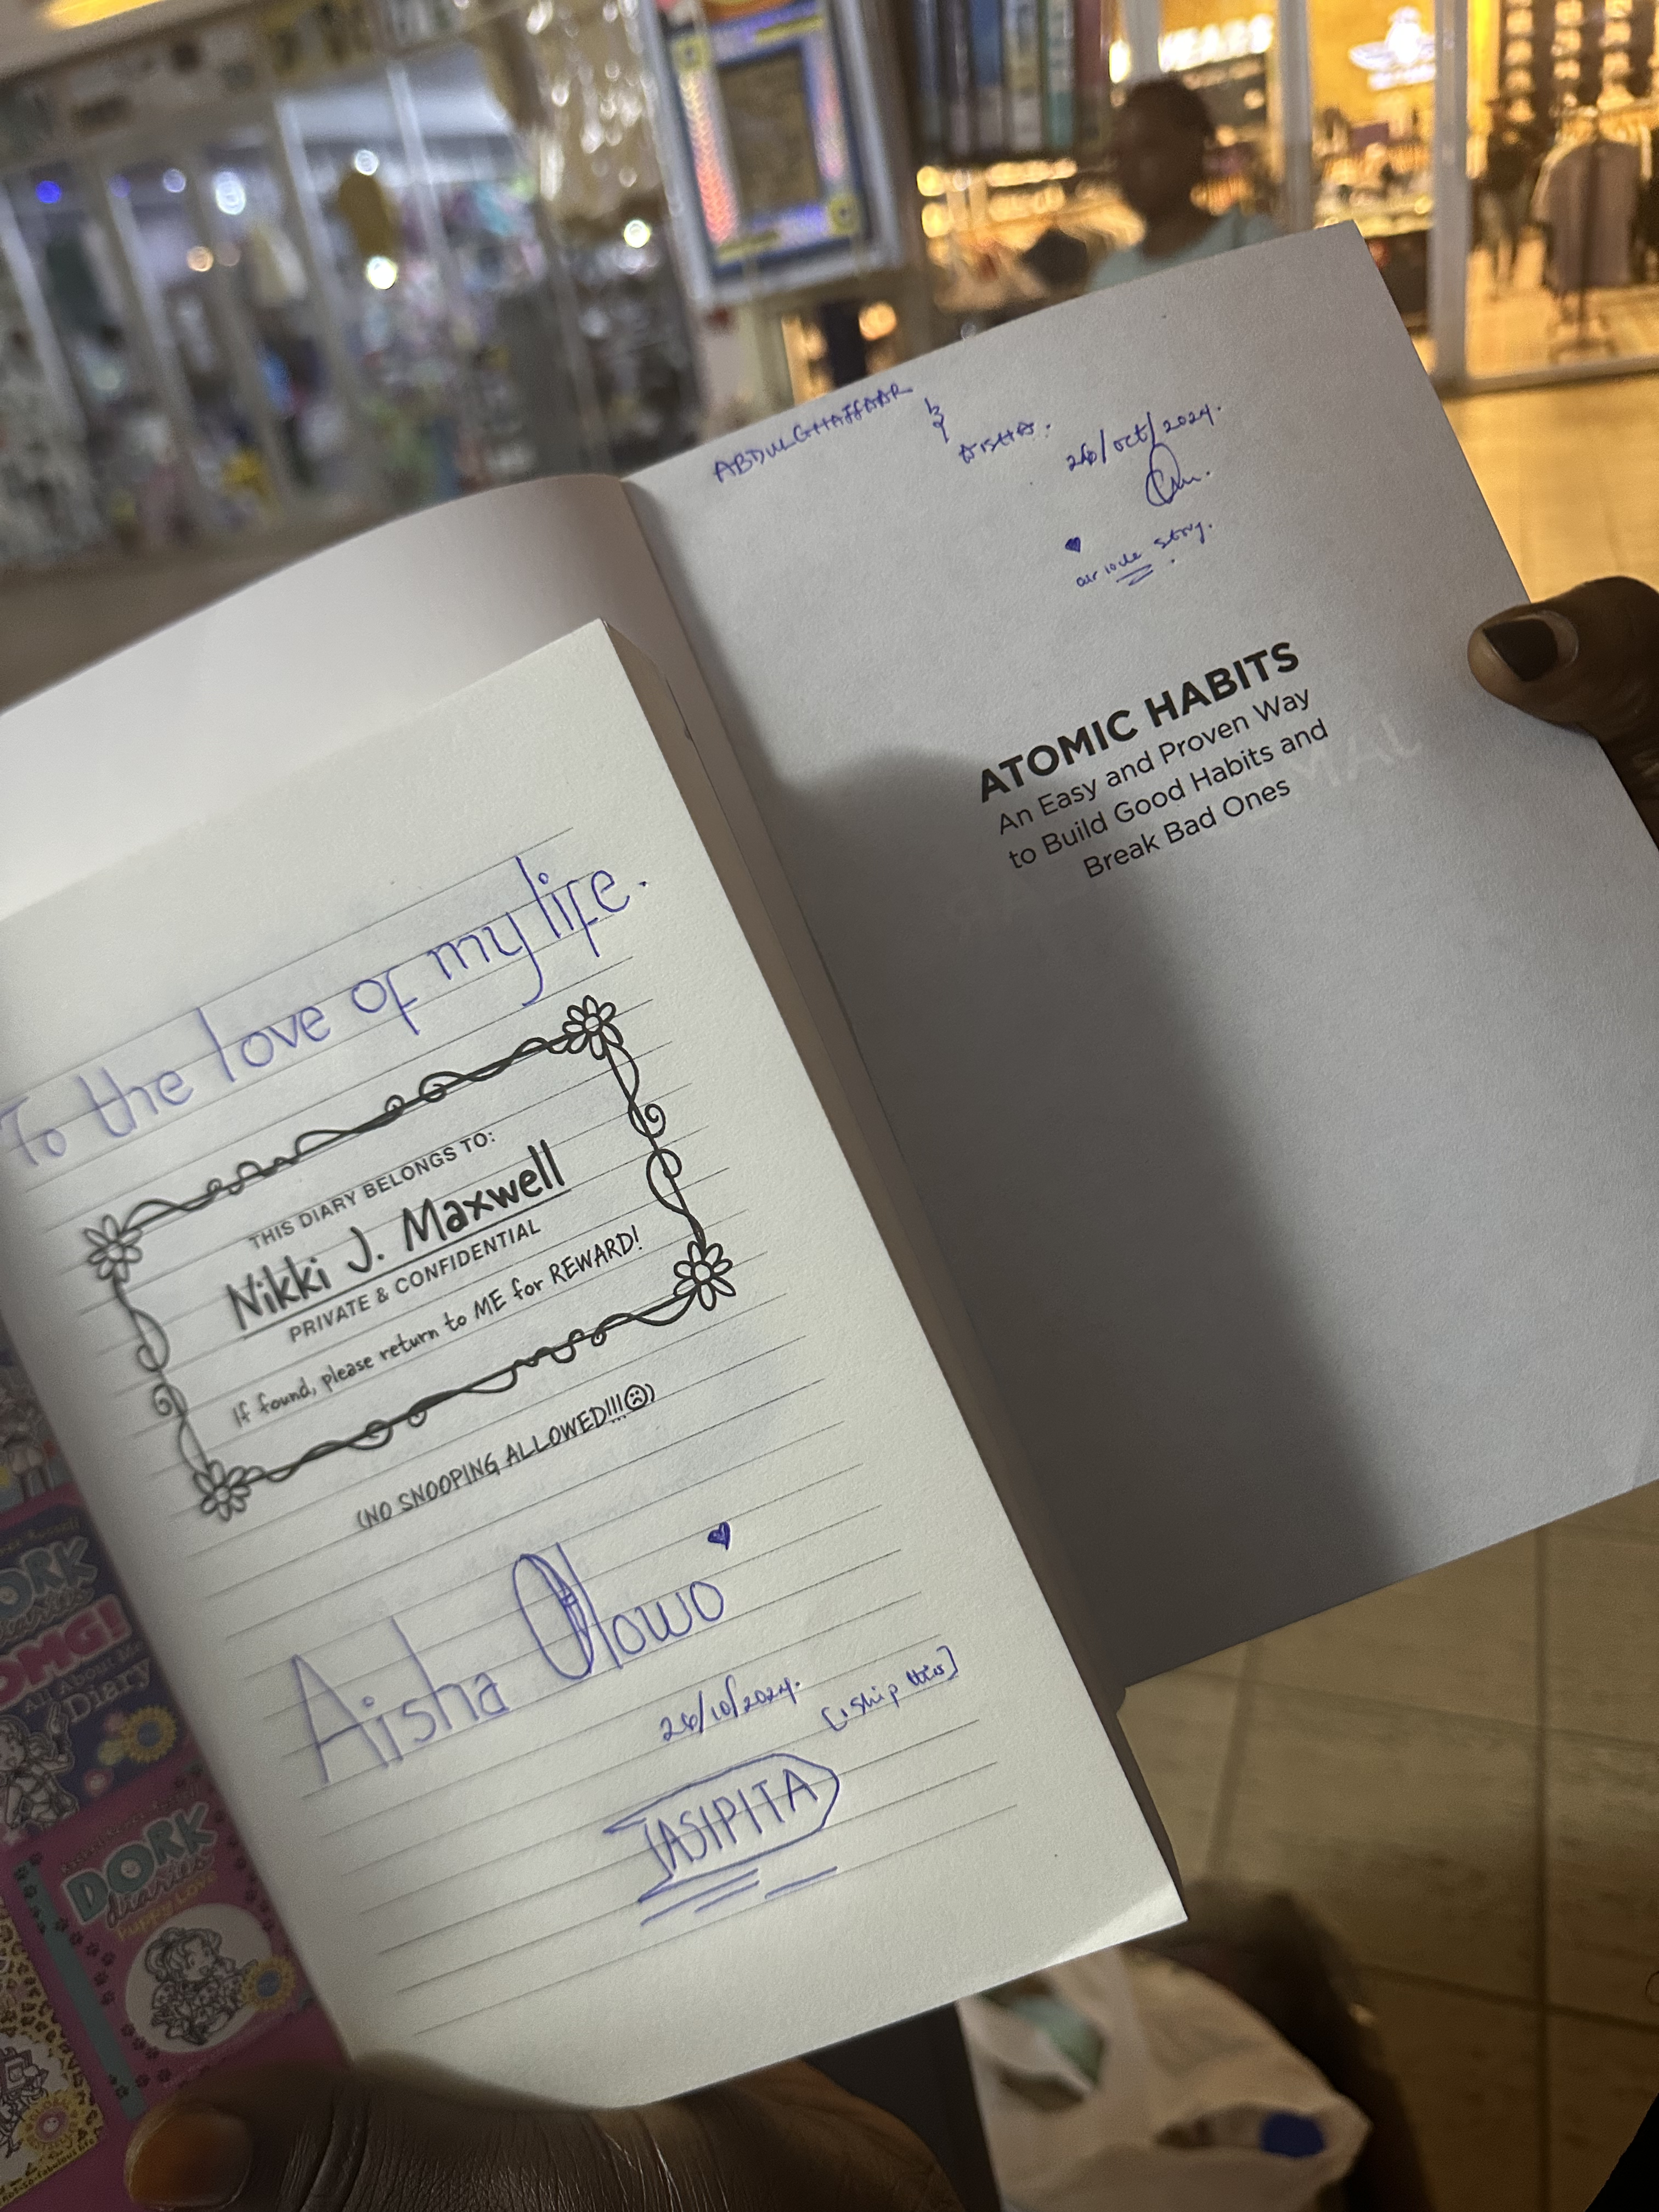 To the love of my life.
THIS DIARY BELONGS TO:
Nikki J. Maxwell
PRIVATE & CONFIDENTIAL
If found, please return to ME for REWARD!
(NO SNOOPING ALLOWED!!!☹)
Aisha Olowo
26/10/2024.
TASIPITA
ABDULGHAFFAAR
&
AISHA.
26/Oct/2024.
our love story.
ATOMIC HABITS
An Easy and Proven Way
to Build Good Habits and
Break Bad Ones
DORK
diaries
OMG!
All About Me
Diary
DORK
diaries
Puppy Love